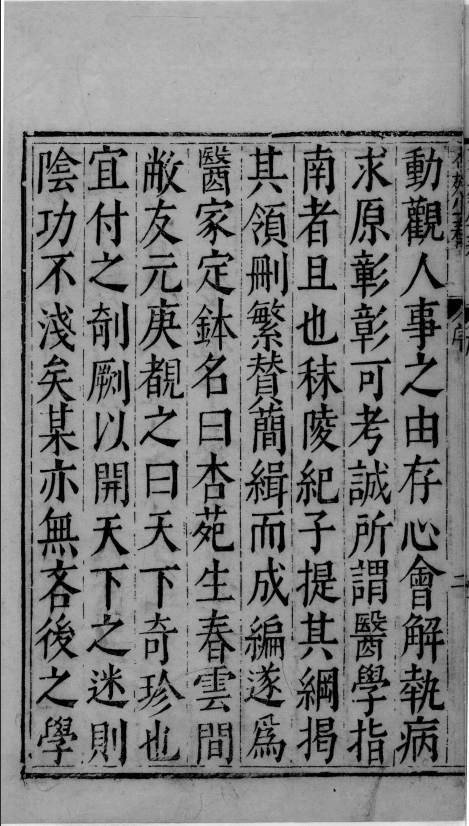 動觀人事之由存心會解執病
求原彰彰可考誠所謂醫學指
南者且也秣陵紀子提其綱揭
其領刪繁賛簡緝而成編遂爲
醫家定鉢名曰杏苑生春雲間
敝友元庚覩之曰天下奇珍也
宜付之剞劂以開天下之迷則
陰功不淺矣某亦無吝後之學